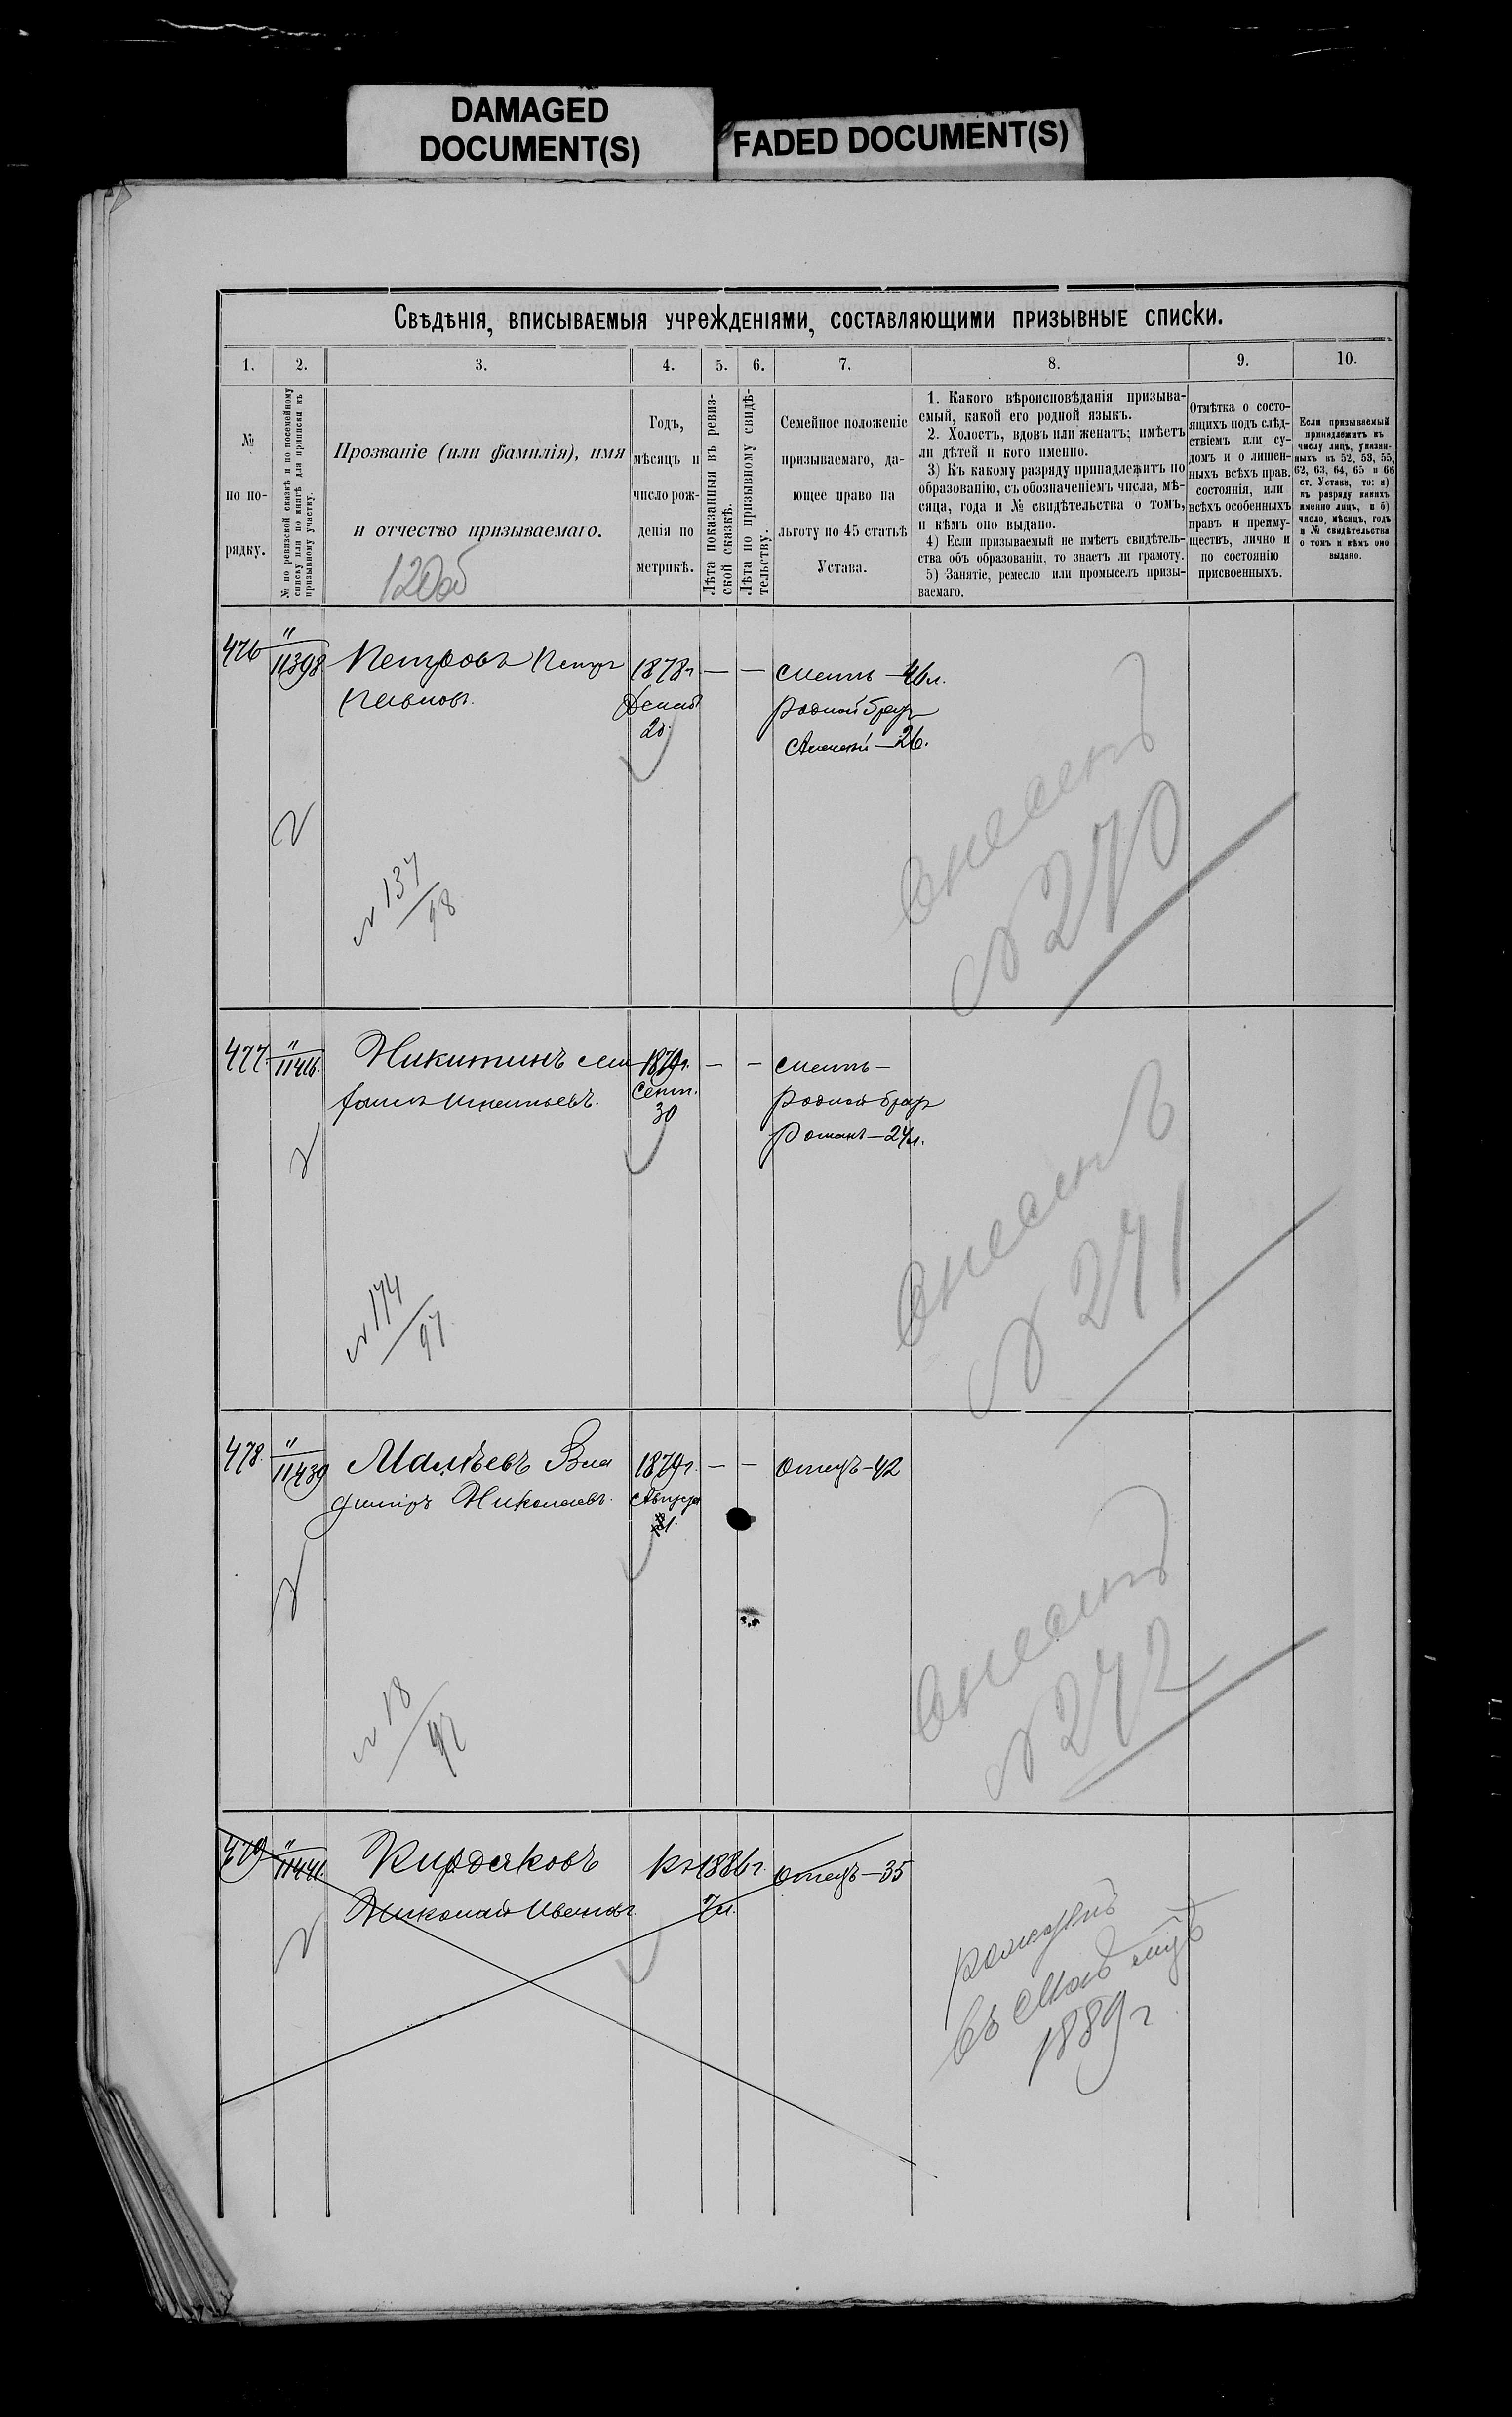 DAMAGED
DOCUMENT(S)
FADED DOCUMENT(S)
Свѣдѣнія, вписываемыя учрежденіями, составляющими призывные списки.
1. 2. 3. 4. 5. 6. 7. 8. 9. 10.
№
по по-
рядку.
№ по ревизской сказкѣ и по посемейному
списку или по книгѣ для приписки къ
призывному участку.
Прозваніе (или фамилія), имя
и отчество призываемаго.
120об
Годъ,
мѣсяцъ и
число рож-
денія по
метрикѣ.
Лѣта показанныя въ ревиз-
ской сказкѣ.
Лѣта по призывному свидѣ-
тельству.
Семейное положеніе
призываемаго, да-
ющее право на
льготу по 45 статьѣ
Устава.
1. Какого вѣроисповѣданія призыва-
емый, какой его родной языкъ.
2. Холостъ, вдовъ или женатъ; имѣетъ
ли дѣтей и кого именно.
3) Къ какому разряду принадлежитъ по
образованію, съ обозначеніемъ числа, мѣ-
сяца, года и № свидѣтельства о томъ,
и кѣмъ оно выдано.
4) Если призываемый не имѣетъ свидѣтель-
ства объ образованіи, то знаетъ ли грамоту.
5) Занятіе, ремесло или промыселъ призы-
ваемаго.
Отмѣтка о состо-
ящихъ подъ слѣд-
ствіемъ или су-
домъ и о лишен-
ныхъ всѣхъ прав.
состоянія, или
всѣхъ особенныхъ
правъ и преиму-
ществъ, лично и
по состоянію
присвоенныхъ.
Если призываемый
принадлежитъ къ
числу лицъ, указан-
ныхъ въ 52, 53, 55,
62, 63, 64, 65 и 66
ст. Устава, то: а)
къ разряду какихъ
именно лицъ, и б)
число, мѣсяцъ, годъ
и № свидѣтельства
о томъ и кѣмъ оно
выдано.
476 " 11398 Петровъ Петръ 1878г — — Мать — 46л.
Павловъ. Декаб Родной братъ
Алексѣй — 26.
внесенъ
№ 270
№ 137/98
477. " 11416. Никитинъ Ми 1879г. — — Мать —
Сент. Родной братъ
30 Романъ — 24л.
внесенъ
№ 271
№ 174/97
478. " 11439 Малѣевъ Вла 1879г. — — Отецъ — 42
диміръ Николаевъ. Августа
внесенъ
№ 272
№ 18/97
479 " 11441. Кирдяковъ Къ 1886г. Отецъ — 35
Николай Иванов. 7л.
рожденъ
въ Маѣ мцѣ
1889г